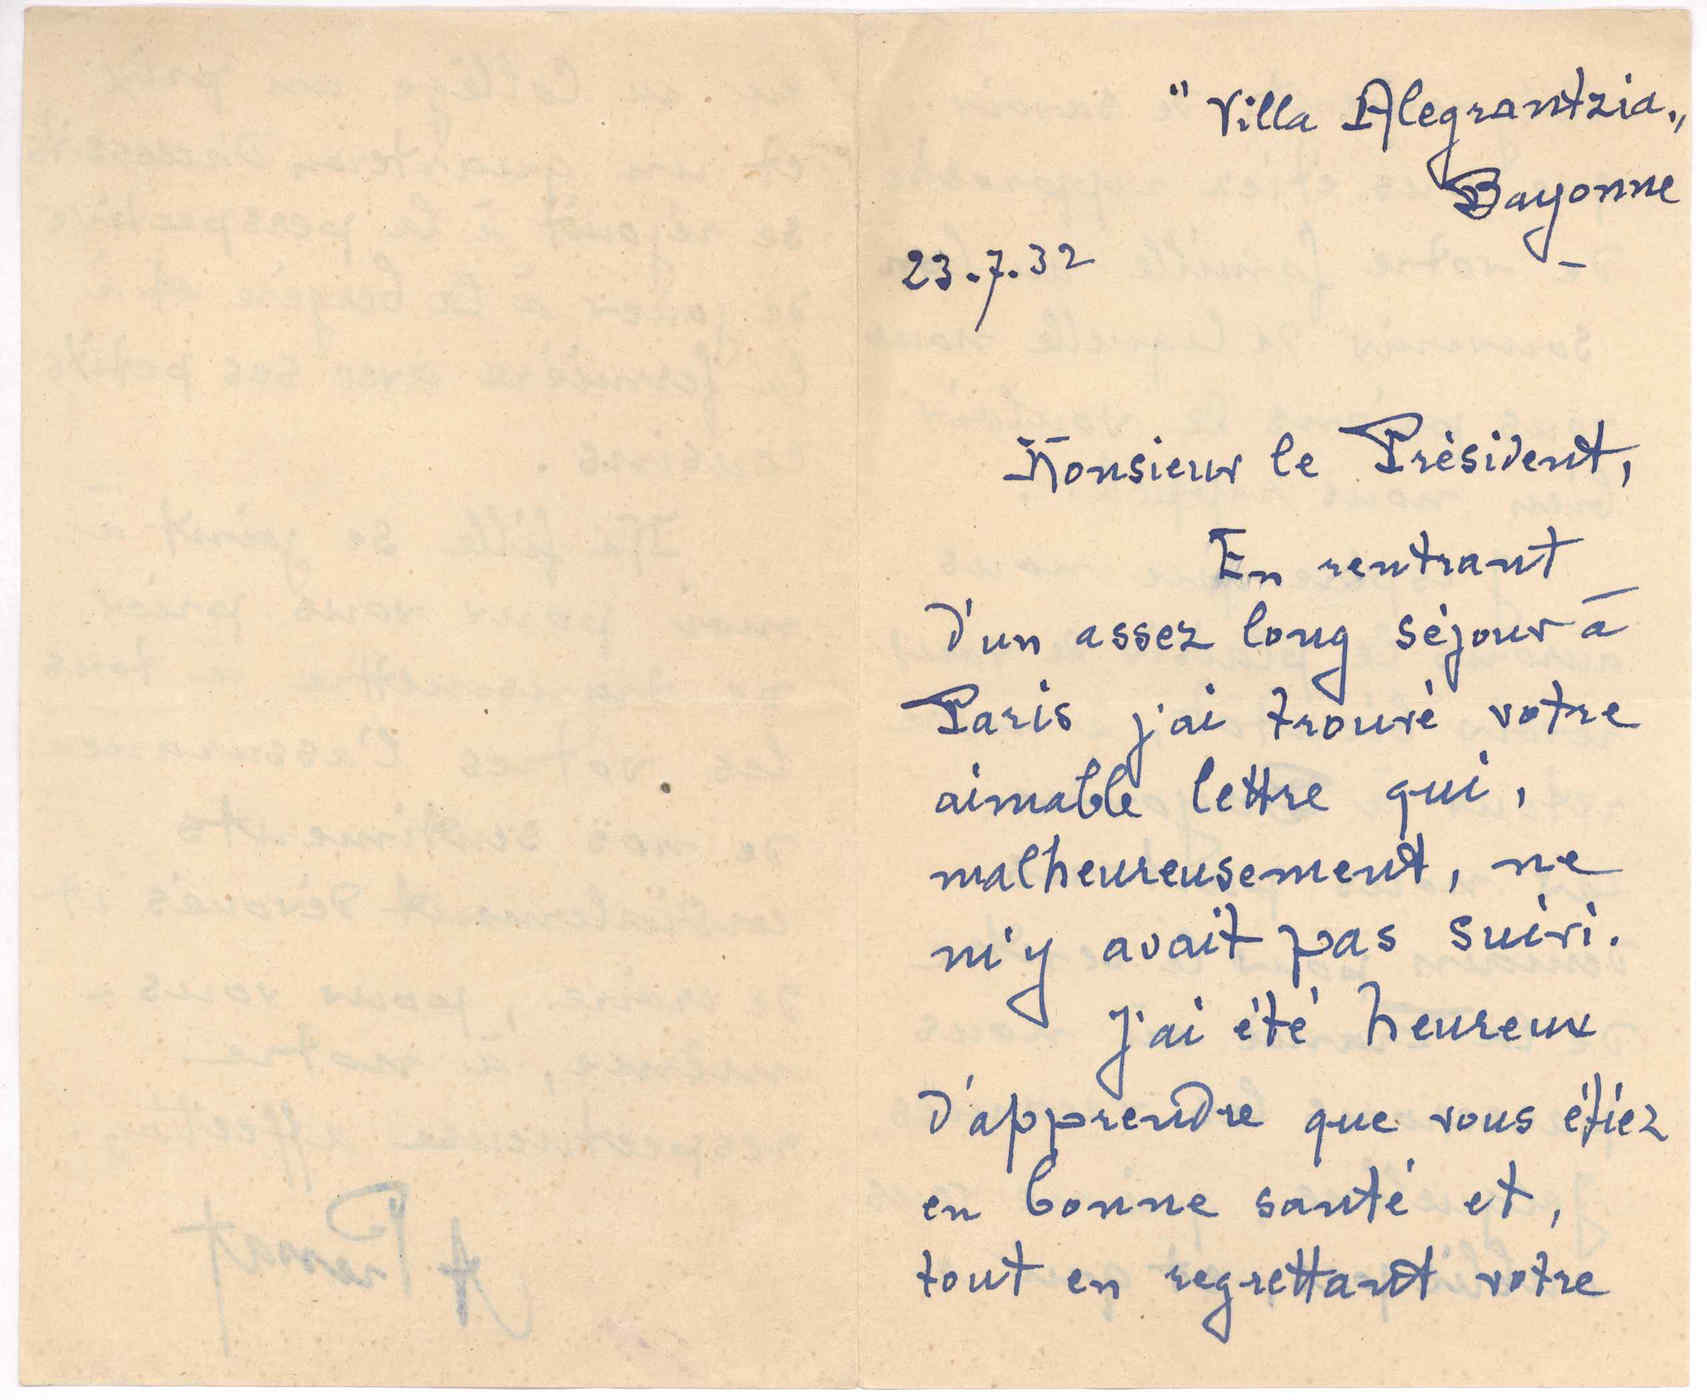 "Villa Alegrantzia"
Bayonne
23.7.32
Monsieur le Président,
En rentrant
d'un assez long séjour à
Paris j'ai trouvé votre
aimable lettre qui,
malheureusement, ne
m'y avait pas suivi.
J'ai été heureux
d'apprendre que vous étiez
en bonne santé et,
tout en regrettant votre